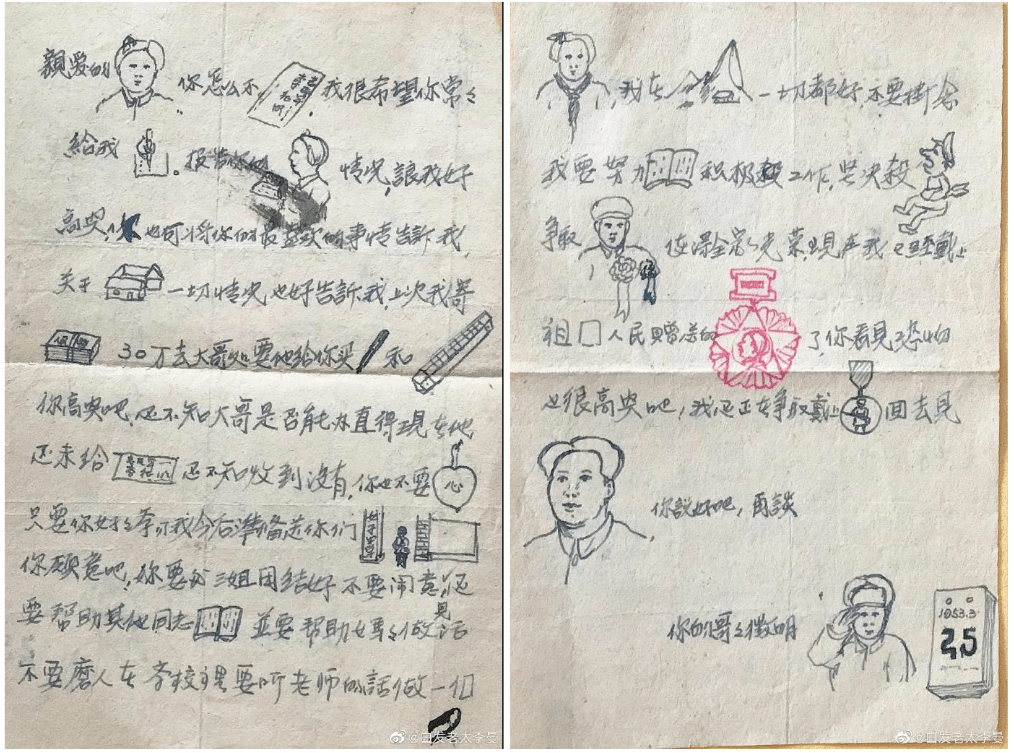 親爱的 你怎么不 我很希望你常々
給我 。报告你的 情况,讓我好
高兴, 也可将你的最喜欢的事情告訴我,
关于 一切情况也好告訴我,上次我寄
30万去大哥如要他給你买 和
你高兴吧,还不知大哥是否能办直得現在他
还未给 还不知收到没有,你也不要 心
只要你好々学习我今后準备送你们
你愿意吧,妳要分三姐团结好不要闹意见还
要帮助其他同志 並要帮助妈々做 活
不要磨人在学校里要听老师的話做一个
,我在 一切都好,不要掛念
我要努力 积极 工作,坚决殺
争取 使得全家光荣,現在我已経戴上
祖 人民贈送的 了,你看見恐怕
也很高兴吧,我还正在争取戴上 回去見
你說好吧,再談
你的哥々徵明
1953.3.
25
@白发老太李曼
@白发老太李曼